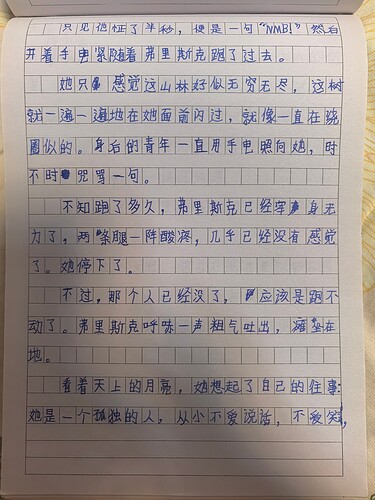 只见他怔了半秒，便是一句“NMB!”然后
开着手电紧随着弗里斯克跑了过去。
她只感觉这山林好似无穷无尽，这树
就一遍一遍地在她面前闪过，就像一直在绕
圈似的。身后的青年一直用手电照向她，时
不时咒骂一句。
不知跑了多久，弗里斯克已经浑身无
力了，两条腿一阵酸疼，几乎已经没有感觉
了。她停下了。
不过，那个人已经没了，应该是跑不
动了。弗里斯克呼哧一声粗气吐出，瘫在
地。
看着天上的月亮，她想起了自己的往事：
她是一个孤独的人，从小不爱说话，不爱笑，